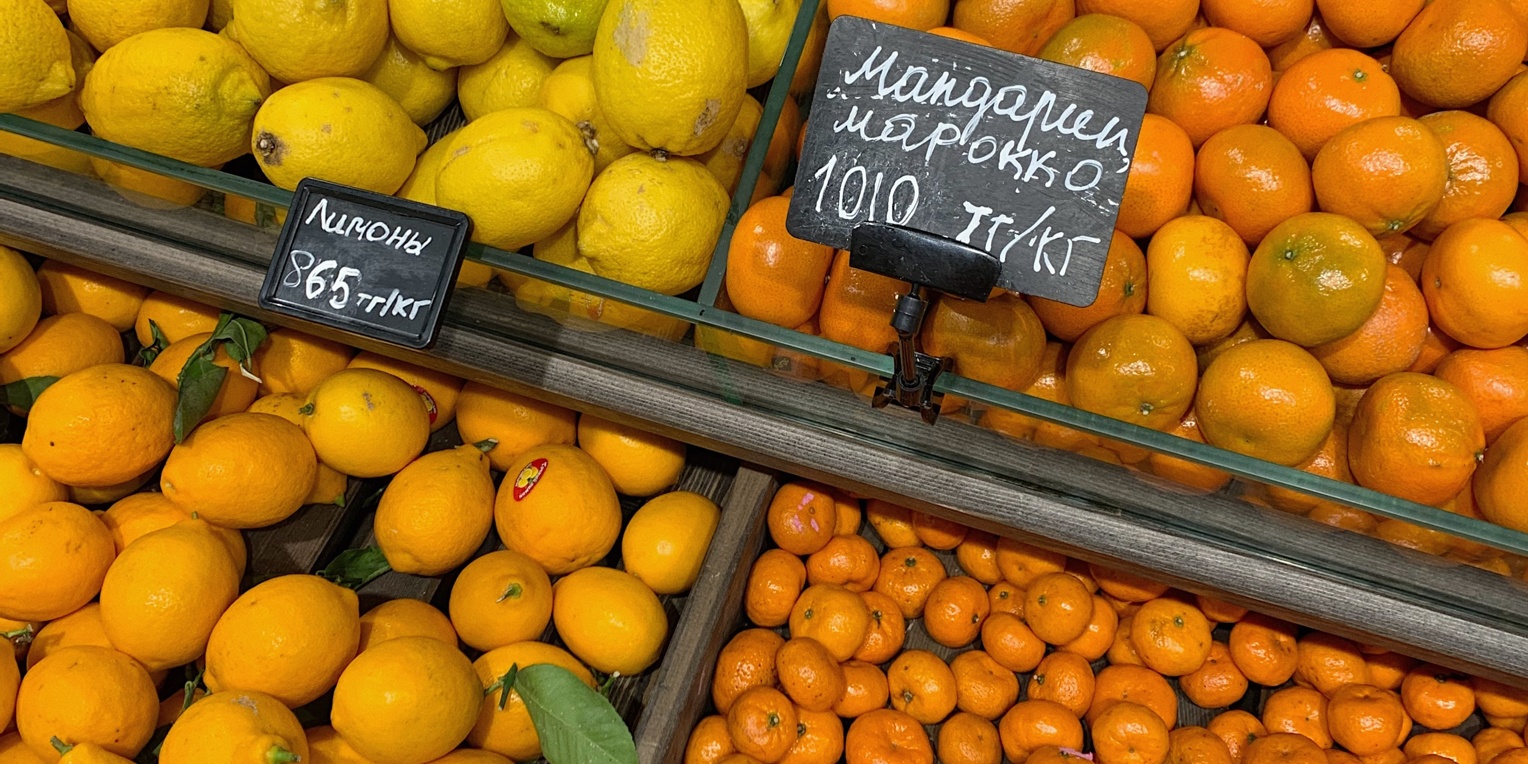 Лимоны
865 тг/кг
Мандарин,
марокко,
1010 тг/кг